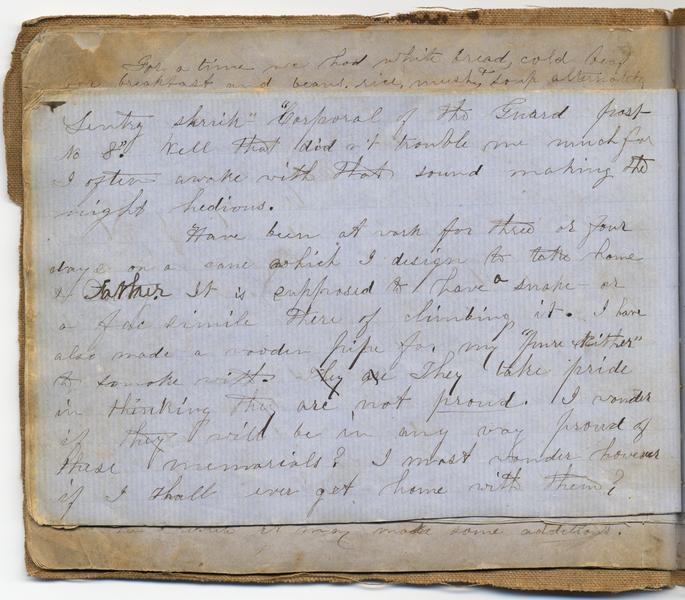 For a time we had white bread, cold beef
for breakfast and beans, rice, mush, & soup alternately
Sentry shrieh" "Corporal of the Guard post
No 8". Well that did n't trouble me much for
I often awake with that sound making the
night hedious.
Have been at work for three or four
days on a cane which I design to take home
to Father. It is supposed to have a snake or
a fac simile there of climbing it. I have
also made a wooden pipe for my "pure
to smoke with. They take pride
in thinking they are not proud. I wonder
if they will be in any way proud of
these memorials? I most wonder however
if I shall ever get home with them?
it may make some additions.